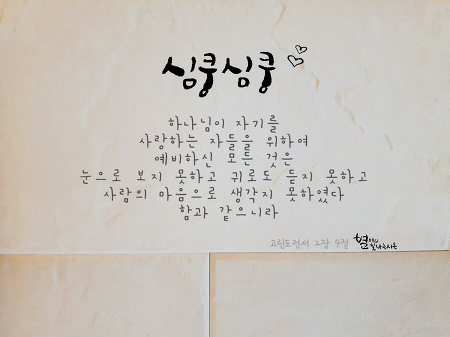 심쿵심쿵
하나님이 자기를
사랑하는 자들을 위하여
예비하신 모든 것은
눈으로 보지 못하고 귀로도 듣지 못하고
사람의 마음으로 생각지 못하였다
함과 같으니라
고린도전서 2장 9절